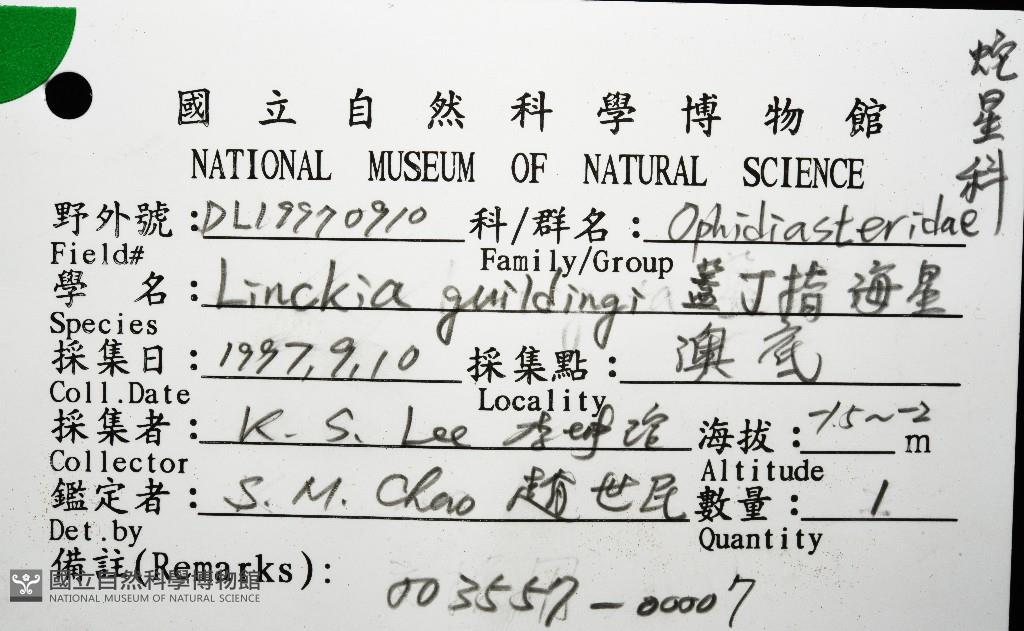 蛇星科
國立自然科學博物館
NATIONAL MUSEUM OF NATURAL SCIENCE
野外號:DL19970910 科/群名:Ophidiasteridae
Field# Family/Group
學名:Linckia guildingi 蓋丁指海星
Species
採集日:1997,9,10 採集點:澳底
Coll.Date Locality
採集者:K. S. Lee 李 海拔:-1.5~-2 m
Collector Altitude
鑑定者:S. M. Chao 趙世民 數量:1
Det.by Quantity
備註(Remarks):
003557-00007
國立自然科學博物館
NATIONAL MUSEUM OF NATURAL SCIENCE